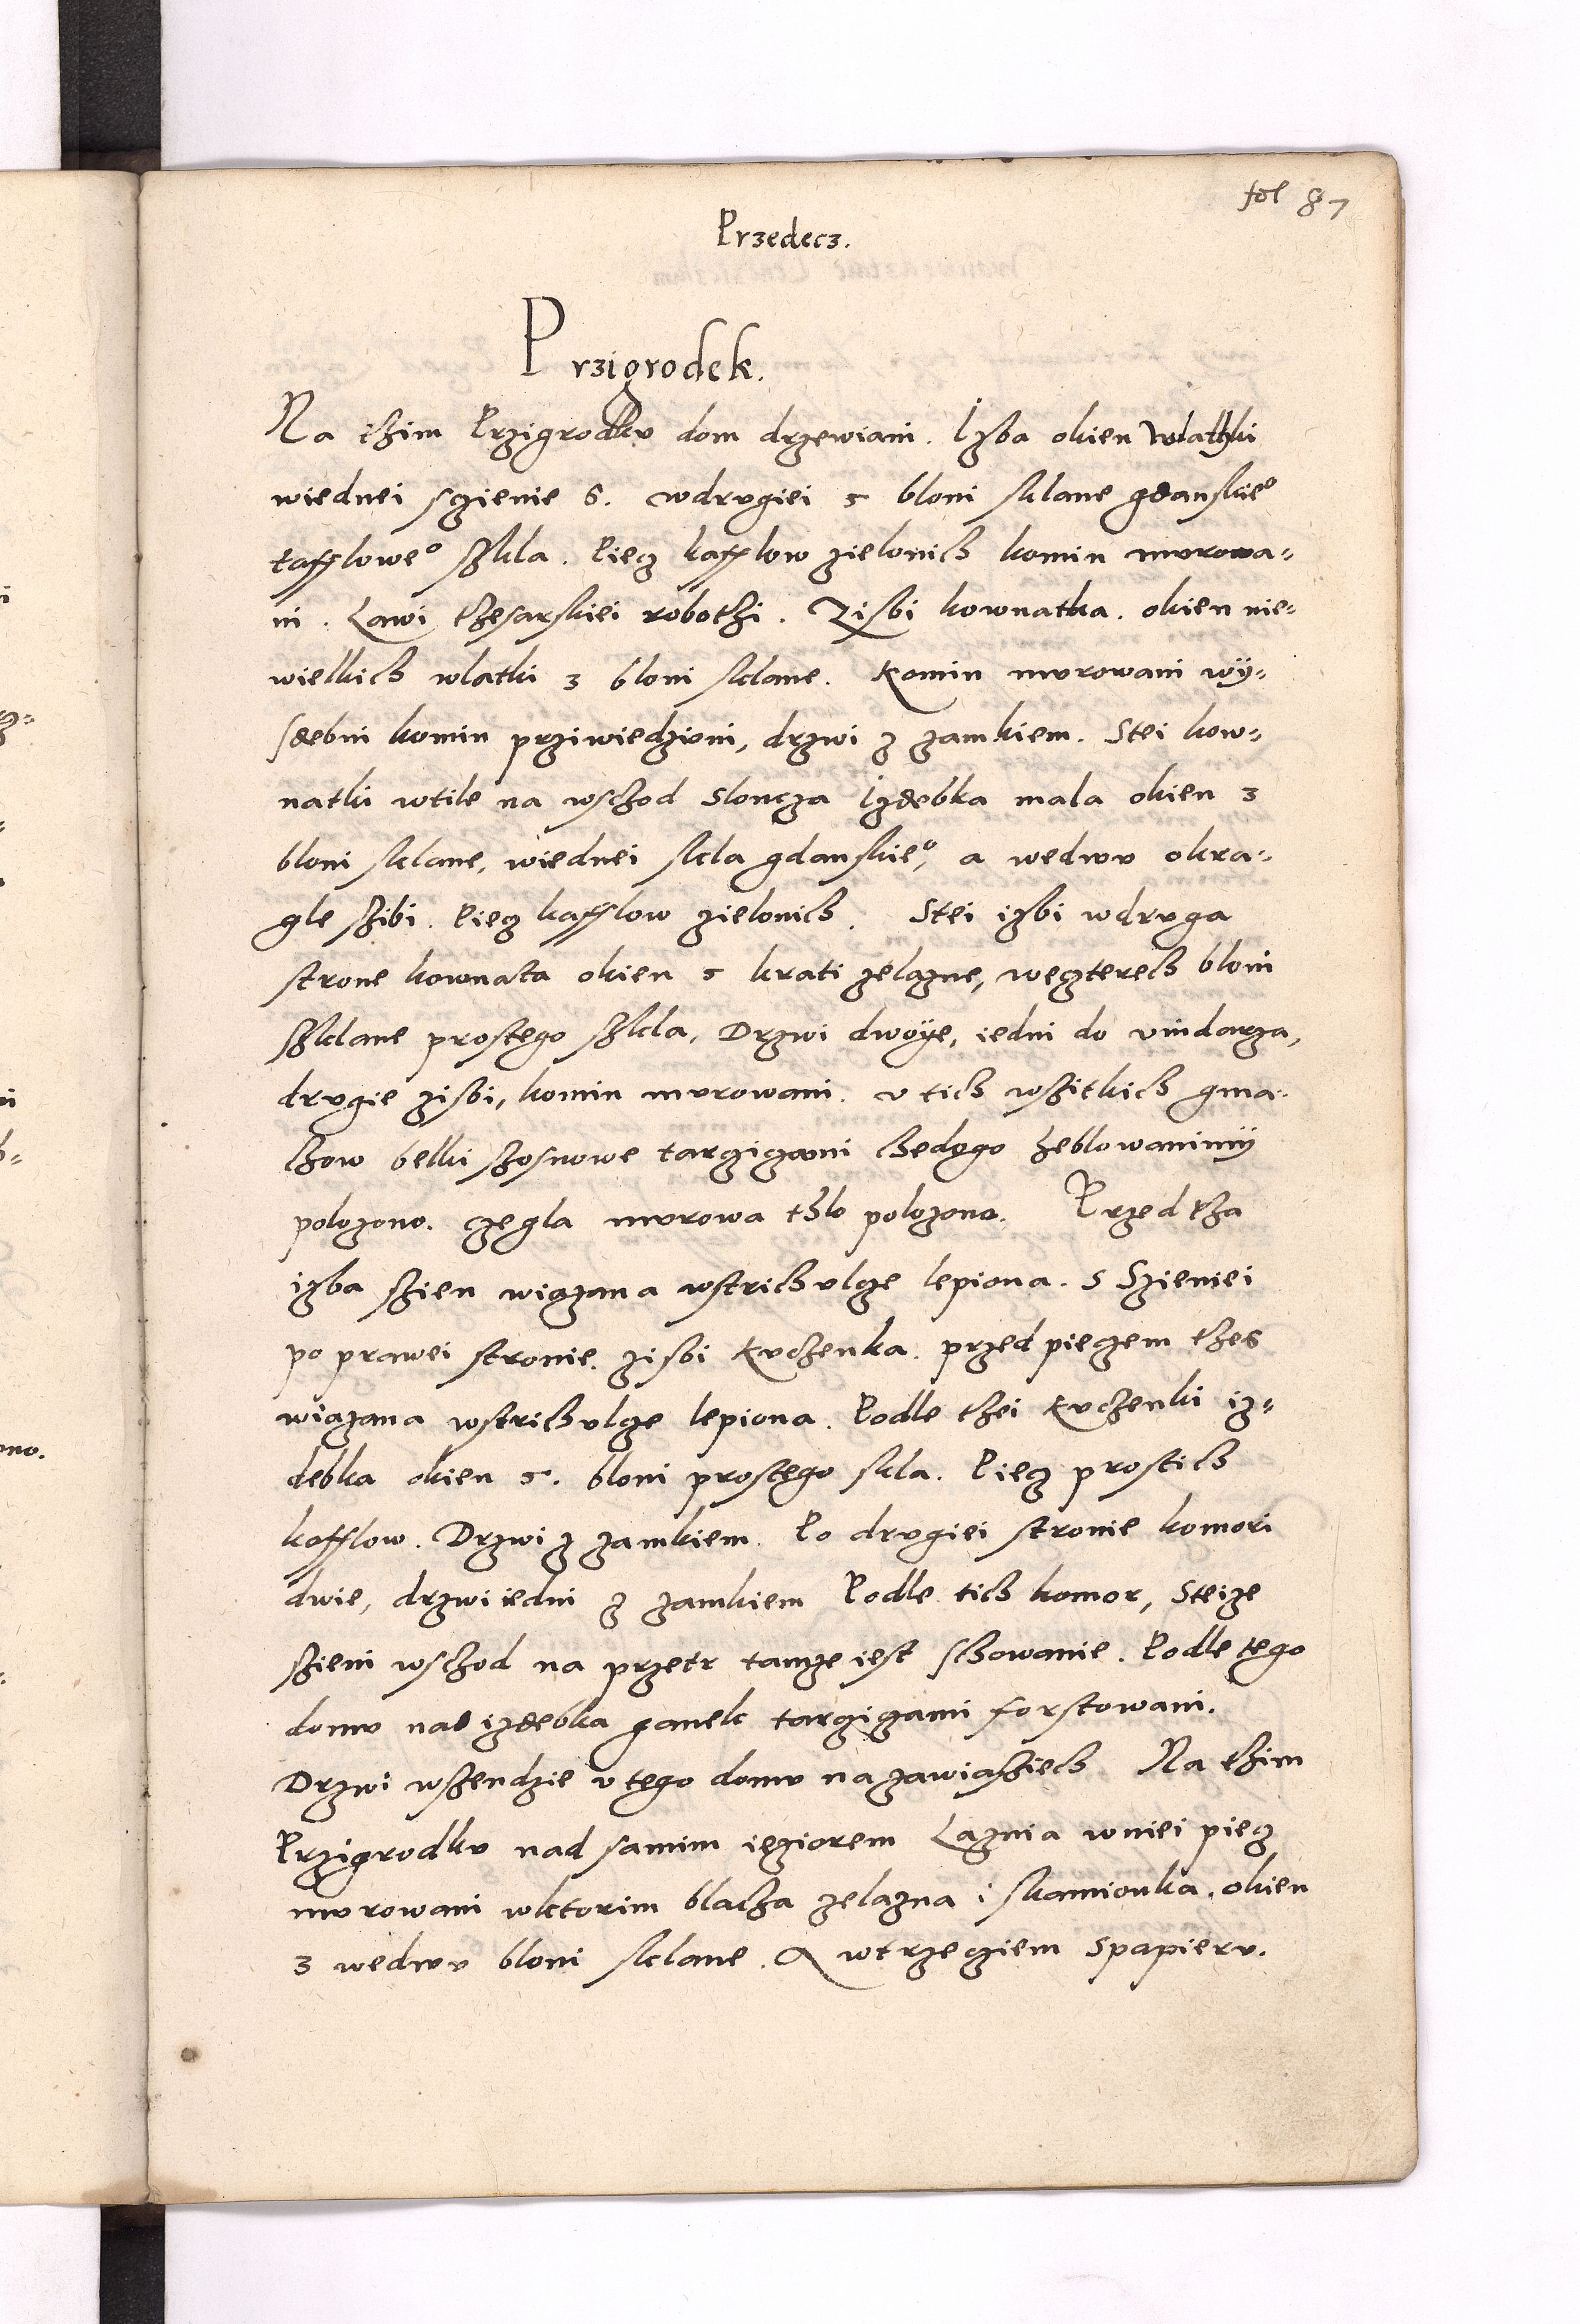 fol 87
Przedecz.
Przigrodek.
Na thim Przigrodku dom drzewiani. Izba okien wlathki
wiednei sczienie 6. wdrugiei 5 bloni sklane gdanskieº
taffloweº szkla. Piecz kafflow zielonich komin murowa-
ni. Lawi thesarskiei robothi. Zisbi kownatka. okien nie-
wielkich wlatki 3 bloni sklane. Komin murowani wÿ-
sdebni komin prziwiedzioni, drzwi z zamkiem. Stei kow-
natki wtile na wschod Sloncza Izdebka mala okien 3
bloni sklane, wiednei skla gdanskieº, a wedwu okra-
gle szibi. Piecz kafflow zielonich. Stei izbi wdruga
strone kownata okien 5 krati zelazne, weczterech bloni
szklane prostego szkla, Drzwi dwoÿe, iedni do vindarza,
drugie zisbi, komin murowani. v tich wszitkich gma-
chow belki szosnowe targiczami chedogo heblowanimÿ
polozono. czegla murowa thlo polozono. Przed tha
izba szien wiązana wstrichulcze lepiona. S Szieniei
po prawei stronie. zisbi Kuchenka. przed pieczem thes
wiązana wstrichulcze lepiona. Podle thei Kuchenki iz-
debka okien 5. bloni prostego skla. Piecz prostich
kafflow. Drzwi z zamkiem. Po drugiei stronie komori
dwie, drzwi iedni z zamkiem Podle tich komor, Steize
szieni wschod na przetr tamze iest schowanie. Podle tego
domu nad izdebka ganek targiczami forstowani.
Drzwi wszendzie v tego domu na zawiasziech Na thim
Przigrodku nad samim ieziorem Laznia wniei piecz
murowani wktorim blacha zelazna i skamionka. okien
3 wedwu bloni sklane. A wtrzecziem Spapieru.